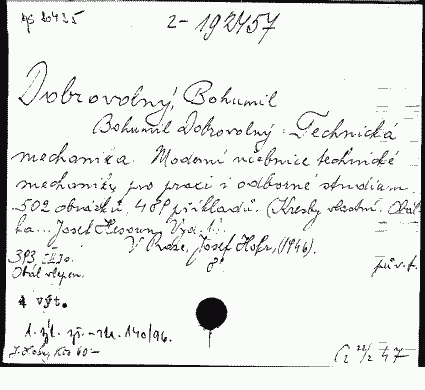 2-192457
Dobrovolný, Bohumil
Bohumil Dobrovolný: Technická
mechanika. Moderní učebnice technické
mechaniky pro praxi i odborné studium.
502 obrázků, 409 příkladů. (Kresby vlastní. Obál-
ka... Josef Hesoun. Vyd. 1.)
V Praze, Josef Hokr, (1946).
393, [II] s. 8°
Obál. vlepen. pův. f.
4 výt.
1. zvl. př. - 140/96.
J. Hokr, Kčs 60-
22/2 47